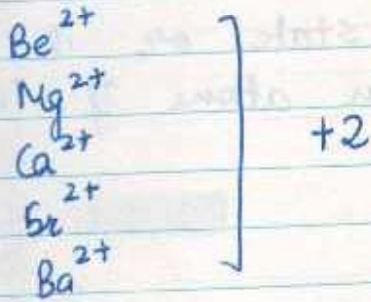 Be²⁺
Mg²⁺
Ca²⁺
Sr²⁺
Ba²⁺
+2